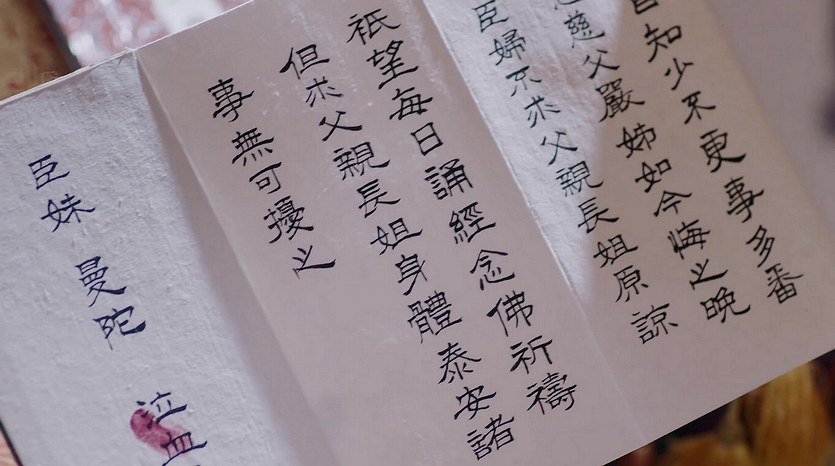 知少不更事多番
慈父嚴姊如今悔之晚
臣婦不求父親長姐原諒
祇望每日誦經念佛祈禱
但求父親長姐身體泰安諸
事無可擾之
臣妹 曼陀 泣血